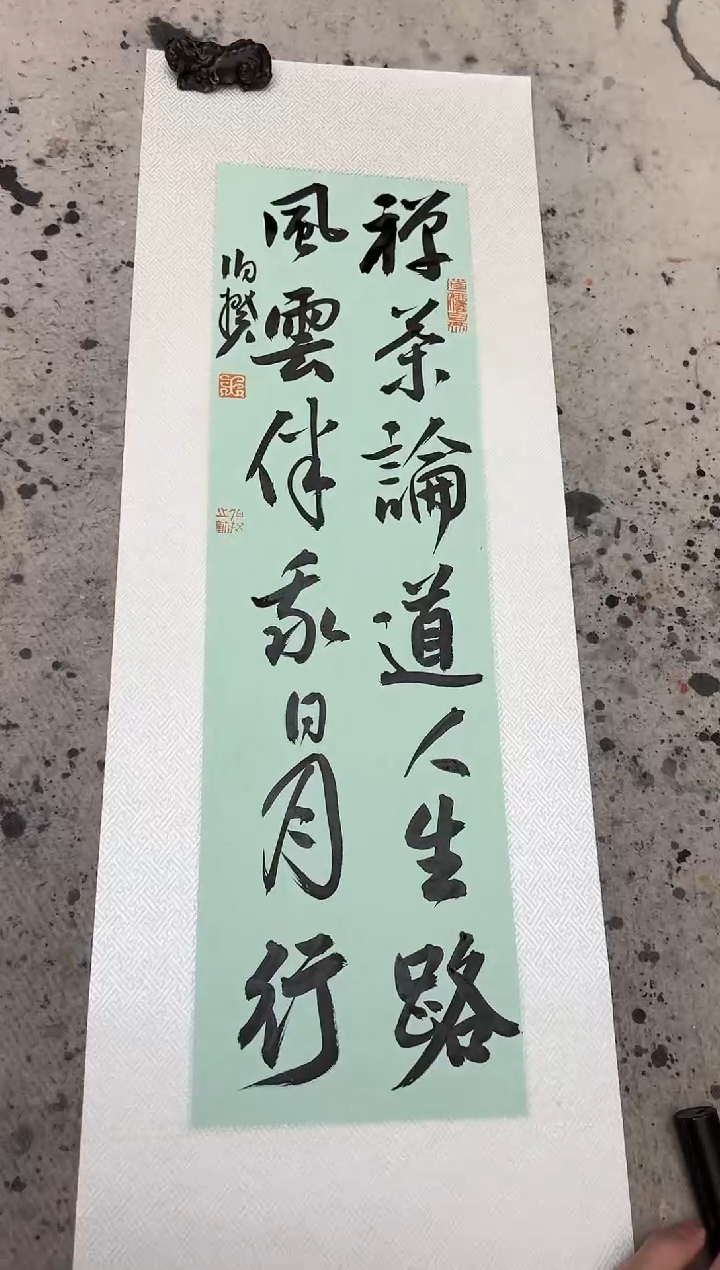 禅茶論道人生路
風雲伴我日月行
伯揆